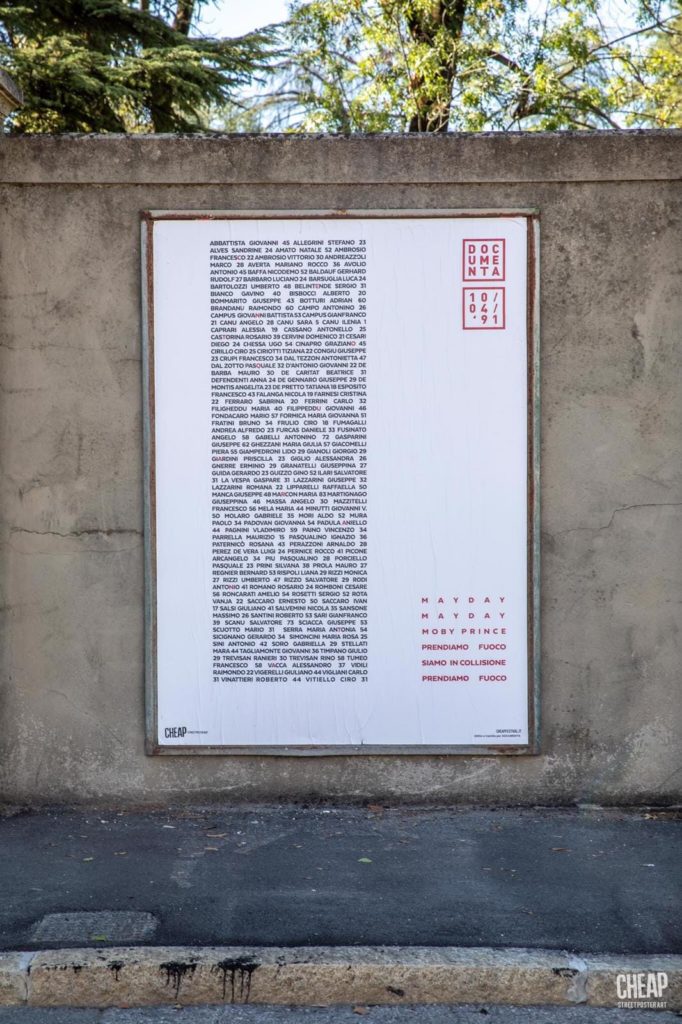 ABBATTISTA GIOVANNI 45 ALLEGRINI STEFANO 23
ALVES SANDRINE 24 AMATO NATALE 52 AMBROSIO
FRANCESCO 22 AMBROSIO VITTORIO 30 ANDREAZZOLI
MARCO 28 AVERTA MARIANO ROCCO 36 AVOLIO
ANTONIO 45 BAFFA NICODEMO 52 BALDAUF GERHARD
RUDOLF 27 BARBARO LUCIANO 24 BARSUGLIA LUCA 24
BARTOLOZZI UMBERTO 48 BELINTENDE SERGIO 31
BIANCO GAVINO 40 BISBOCCI ALBERTO 20
BOMMARITO GIUSEPPE 43 BOTTURI ADRIAN 60
BRANDANU RAIMONDO 60 CAMPO ANTONINO 26
CAMPUS GIOVANNI BATTISTA 53 CAMPUS GIANFRANCO
21 CANU ANGELO 28 CANU SARA 5 CANU ILENIA 1
CAPRARI ALESSIA 19 CASSANO ANTONELLO 25
CASTORINA ROSARIO 39 CERVINI DOMENICO 21 CESARI
DIEGO 24 CHESSA UGO 54 CINAPRO GRAZIANO 45
CIRILLO CIRO 25 CIRIOTTI TIZIANA 22 CONGIU GIUSEPPE
23 CRUPI FRANCESCO 34 DAL TEZZON ANTONIETTA 47
DAL ZOTTO PASQUALE 32 D'ANTONIO GIOVANNI 22 DE
BARBA MAURO 30 DE CARITAT BEATRICE 31
DEFENDENTI ANNA 24 DE GENNARO GIUSEPPE 29 DE
MONTIS ANGELITA 23 DE PRETTO TATIANA 18 ESPOSITO
FRANCESCO 43 FALANGA NICOLA 19 FARNESI CRISTINA
22 FERRARO SABRINA 20 FERRINI CARLO 32
FILIGHEDDU MARIA 40 FILIPPEDDU GIOVANNI 46
FONDACARO MARIO 57 FORMICA MARIA GIOVANNA 51
FRATINI BRUNO 34 FRULIO CIRO 18 FUMAGALLI
ANDREA ALFREDO 23 FURCAS DANIELE 33 FUSINATO
ANGELO 58 GABELLI ANTONINO 72 GASPARINI
GIUSEPPE 62 GHEZZANI MARIA GIULIA 57 GIACOMELLI
PIERA 55 GIAMPEDRONI LIDO 29 GIANOLI GIORGIO 29
GIARDINI PRISCILLA 23 GIGLIO ALESSANDRA 26
GNERRE ERMINIO 29 GRANATELLI GIUSEPPINA 27
GUIDA GERARDO 23 GUIZZO GINO 52 ILARI SALVATORE
31 LA VESPA GASPARE 31 LAZZARINI GIUSEPPE 32
LAZZARINI ROMANA 22 LIPPARELLI RAFFAELLA 50
MANCA GIUSEPPE 48 MARCON MARIA 83 MARTIGNAGO
GIUSEPPINA 46 MASSA ANGELO 30 MAZZITELLI
FRANCESCO 56 MELA MARIA 44 MINUTTI GIOVANNI V.
50 MOLARO GABRIELE 35 MORI ALDO 52 MURA
PAOLO 34 PADOVAN GIOVANNA 54 PADULA ANIELLO
44 PAGNINI VLADIMIRO 59 PAINO VINCENZO 34
PARRELLA MAURIZIO 15 PASQUALINO IGNAZIO 36
PATERNICÒ ROSANA 43 PERAZZONI ARNALDO 28
PEREZ DE VERA LUIGI 24 PERNICE ROCCO 41 PICONE
ARCANGELO 34 PIU PASQUALINO 28 PORCIELLO
PASQUALE 23 PRINI SILVANA 38 PROLA MAURO 27
REGNIER BERNARD 53 RISPOLI LIANA 29 RIZZI MONICA
27 RIZZI UMBERTO 47 RIZZO SALVATORE 29 RODI
ANTONIO 41 ROMANO ROSARIO 24 ROMBONI CESARE
56 RONCARATI AMELIO 54 ROSETTI SERGIO 52 ROTA
VANJA 22 SACCARO ERNESTO 50 SACCARO IVAN
17 SALSI GIULIANO 41 SALVEMINI NICOLA 35 SANSONE
MASSIMO 26 SANTINI ROBERTO 53 SARI GIANFRANCO
39 SCANU SALVATORE 73 SCIACCA GIUSEPPE 53
SCUOTTO MARIO 31 SERRA MARIA ANTONIA 54
SICIGNANO GERARDO 34 SIMONCINI MARIA ROSA 25
SINI ANTONIO 42 SORO GABRIELLA 29 STELLATI
MARA 44 TAGLIAMONTE GIOVANNI 36 TIMPANO GIULIO
29 TREVISAN RANIERI 30 TREVISAN RINO 58 TUMEO
FRANCESCO 58 VACCA ALESSANDRO 37 VIDILI
RAIMONDO 22 VIGERELLI GIULIANO 44 VIGLIANI CARLO
31 VINATTIERI ROBERTO 44 VITIELLO CIRO 31
DOC
UME
NTA
10/
04/
'91
MAYDAY
MAYDAY
MOBY PRINCE
PRENDIAMO FUOCO
SIAMO IN COLLISIONE
PRENDIAMO FUOCO
CHEAP
CHEAPFESTIVAL.IT
CHEAP
STREET POSTER ART